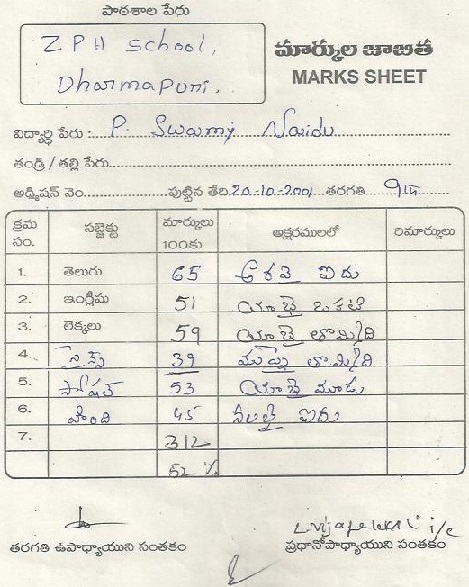 పాఠశాల పేరు
Z.P.H School,
Dharmapuri.
మార్కుల జాబితా
MARKS SHEET
విద్యార్థి పేరు : P. Swamy Naidu
తండ్రి / తల్లి పేరు
అడ్మిషన్ నెం. పుట్టిన తేది 20-10-2001 తరగతి 9th
క్రమ సం. సబ్జెక్టు మార్కులు 100కు అక్షరములలో రిమార్కులు
1. తెలుగు 65 అరవై ఐదు
2. ఇంగ్లీషు 51 యాభై ఒకటి
3. లెక్కలు 59 యాభై తొమ్మిది
4. సైన్స్ 39 ముప్పై తొమ్మిది
5. సోషల్ 53 యాభై మూడు
6. హింది 45 నలభై ఐదు
7. 312
52 %
i/c
తరగతి ఉపాధ్యాయుని సంతకం ప్రధానోపాధ్యాయుని సంతకం